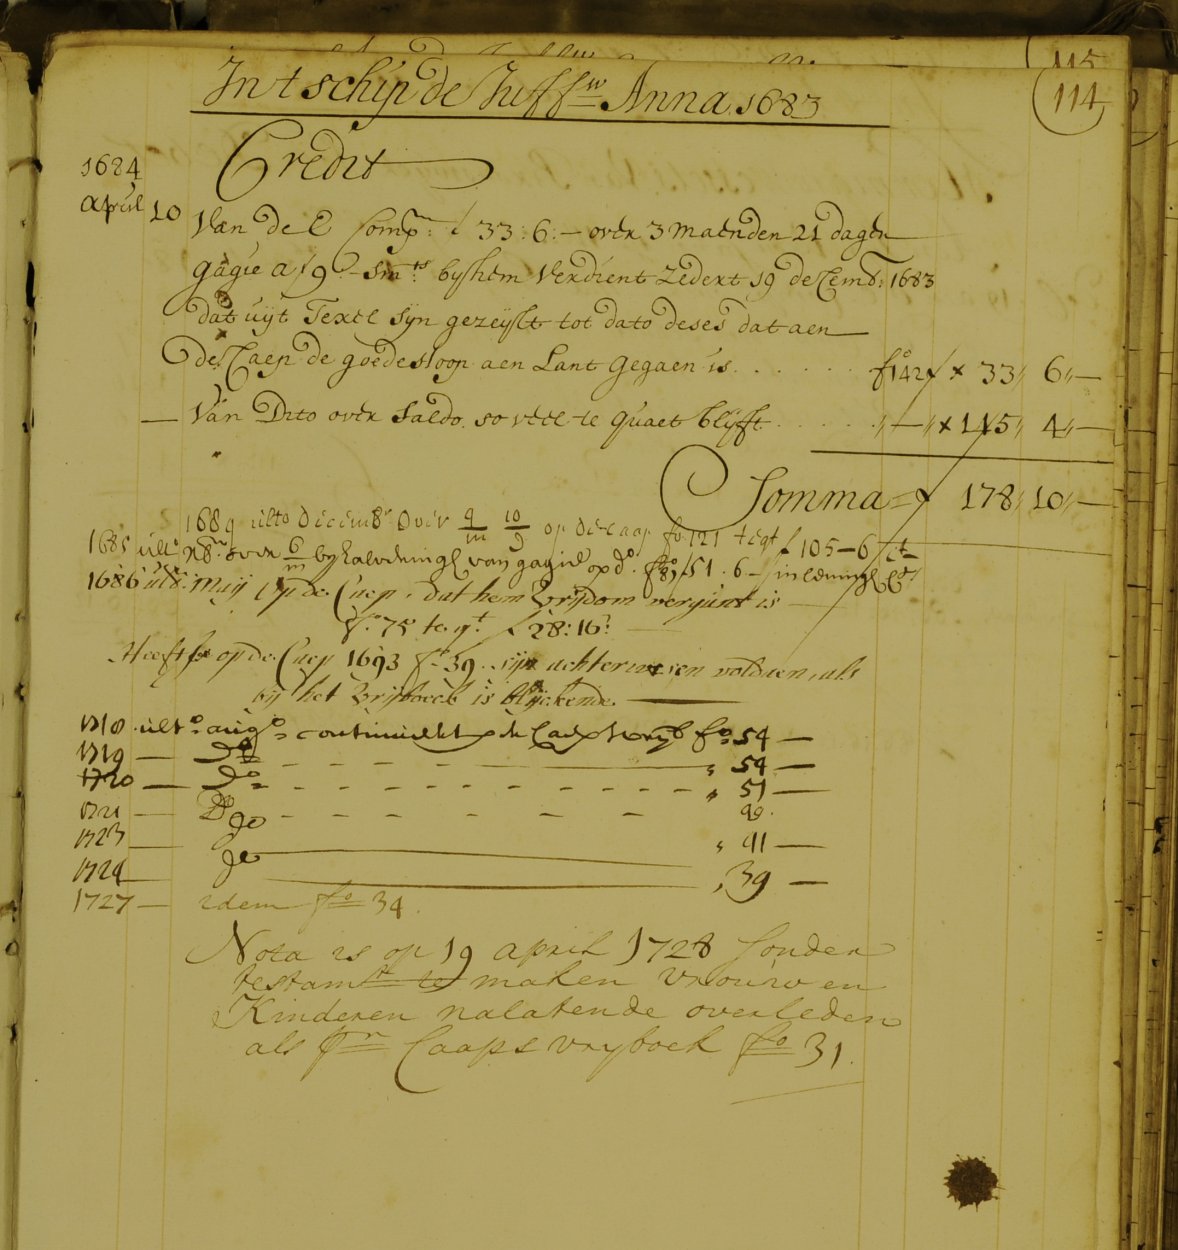 115
114
Int schip de Juffw Anna. 1683
Credit
1684
April 10 Van de E Comp: ƒ 33:6:— over 3 maenden 21 dagen
gagie a ƒ 9:— smts by hem Verdient Zedert 19 deCemb: 1683
dat uyt Texel syn gezeylt tot dato deses dat aen
de Caep de goede Hoop aen Lant gegaen is . . . . . . fo 142 ƒ 33 6 —
— Van Dito over Saldo. so veel te quaet blyft . . . . . — 145 4 —
Somma ƒ 178 10 —
1684 ulto Decemb. Over 9/m 10/g op de Caap fo 121 tegt ƒ 105—6
1685 ulto Xbr. over 6/m by Galvdningl van gagie op do. fo 87 ƒ 51.6—
1686 ulto. Mey op de. Caep. dat hem Vrijdom vergunt is —
fo. 75 teg.t ƒ 28:16: —
Heeft op de Caep 1693 fo 39. sijn achterwesen voldaen, als
bij het Vrijboeck is blijckende. —
1718 ulto augo continueert p de Caeps vryb fo 54 —
1719 — Do — 54 —
1720 — Do „ 51 —
1721 — Do 49.
1723 — do „ 41 —
1724 do , 39 —
1727 — idem fo 34.
Nota is op 19 april 1728 Sonder
testamt te maken vrouw en
Kinderen nalatende overleden
als pr Caaps vryboek fo 31.